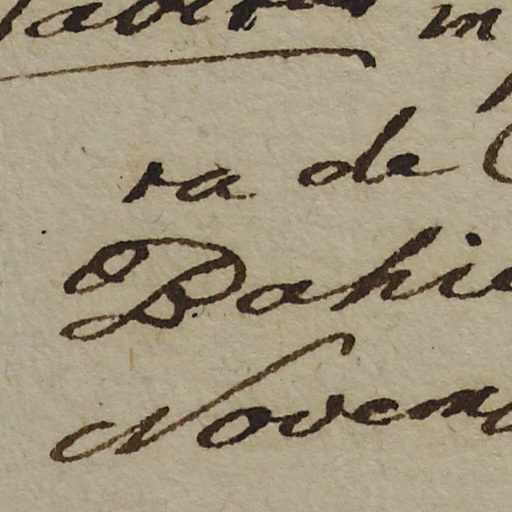 in
ra de
Bahi
Novem